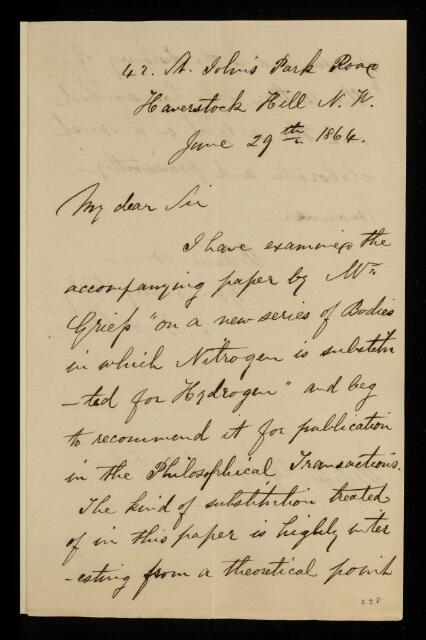 42. St. John's Park Road
Haverstock Hill N.W.
June 29th 1864.
My dear Sir
I have examined the
accompanying paper by Mr.
Griefs "on a new series of Bodies
in which Nitrogen is substitu
-ted for Hydrogen" and beg
to recommend it for publication
in the Philosophical Transactions.
The kind of substitution treated
of in this paper is highly inter
-esting from a theoretical point
228